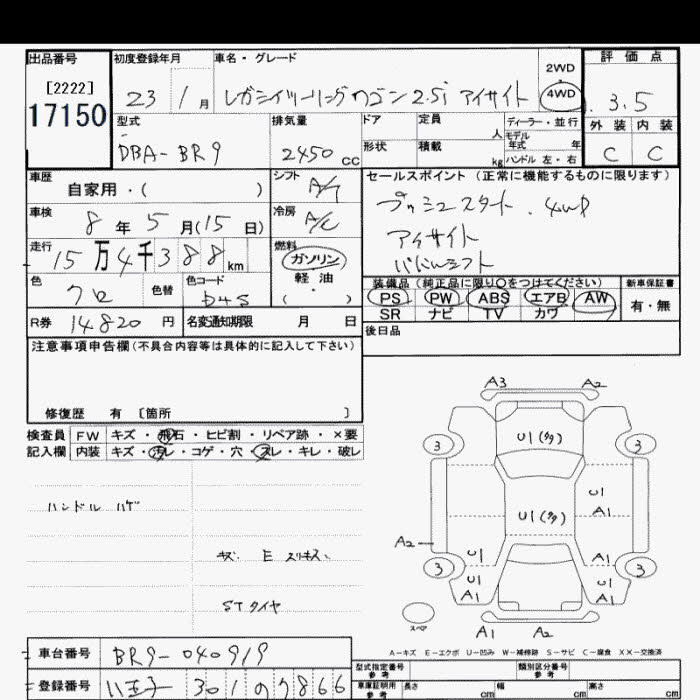 出品番号 初度登録年月 車名・グレード 評価点
[2222] 17150
23 1月 レガシィツーリングワゴン 2.5i アイサイト 2WD 4WD 3.5
型式 排気量 ドア 定員 人 ディーラー・並行 外装 内装
DBA-BR9 2450 cc 形状 積載 kg モデル年式 年 ハンドル 左・右 C C
車歴 自家用・( ) シフト A/T セールスポイント (正常に機能するものに限ります)
車検 8年5月(15日) 冷房 A/C プッシュスタート. 4WD
走行 15万4千388km 燃料 ガソリン 軽油 ( ・ ) アイサイト
パドルシフト
色 クロ 色替 色コード D4S 装備品 (純正品に限り○をつけてください) 新車保証書
PS PW ABS エアB AW 有・無
SR ナビ TV カワ
R券 14820円 名変通知期限 月 日 後日品
注意事項申告欄 (不具合内容等は具体的に記入して下さい)
修復歴 有 〔箇所 〕
検査員 FW キズ・飛石・ヒビ割・リペア跡・×要
記入欄 内装 キズ・汚レ・コゲ・穴・スレ・キレ・破レ
ハンドル ハゲ
キズ E スリキズ、
STタイヤ
A3 A2
3 U1(多) 3
U1
A1
U1(多)
A2
U1 A1
3 3
U1 U1
A1 A1
スペア A1 A2
A-キズ E-エクボ U-凹み W-補修跡 S-サビ C-腐食 XX-交換済
車台番号 BR9-040919 型式指定番号 参考 類別区分番号 参考
登録番号 八王子 301 の 7866 車庫証明用 参考 長さ cm 幅 cm 高さ cm